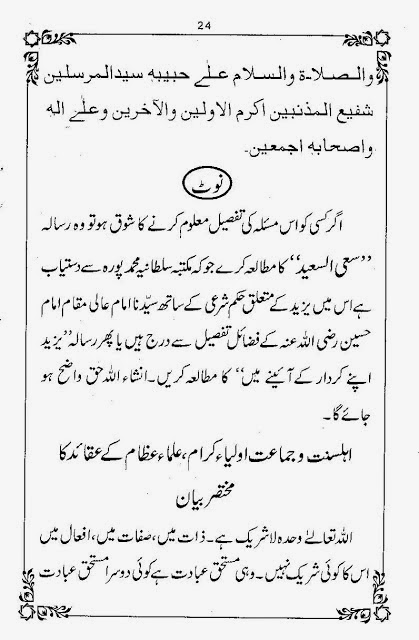 24
والـصـلاـة والسـلام عـلـے حبیبہ سیدالمرسلین
شفیع المذنبین اکرم الاولین والآخرین وعلے الہ
واصحابہ اجمعین۔
نوٹ
اگر کسی کو اس مسئلہ کی تفصیل معلوم کرنے کا شوق ہو تو وہ رسالہ
’’سعی السعید‘‘ کا مطالعہ کرے جو کہ مکتبہ سلطانیہ محمد پورہ سے دستیاب
ہے اس میں یزید کے متعلق حکم شرعی کے ساتھ سیّدنا امام عالی مقام امام
حسین رضی اللہ عنہ کے فضائل تفصیل سے درج ہیں یا پھر رسالہ ’’یزید
اپنے کردار کے آئینے میں‘‘ کا مطالعہ کریں۔ انشاء اللہ حق واضح ہو
جائے گا۔
اہلسنت و جماعت اولیاء کرام، علماء عظام کے عقائد کا
مختصر بیان
اللہ تعالےٰ وحدہ لاشریک ہے۔ ذات میں، صفات میں، افعال میں
اس کا کوئی شریک نہیں۔ وہی مستحق عبادت ہے کوئی دوسرا مستحق عبادت